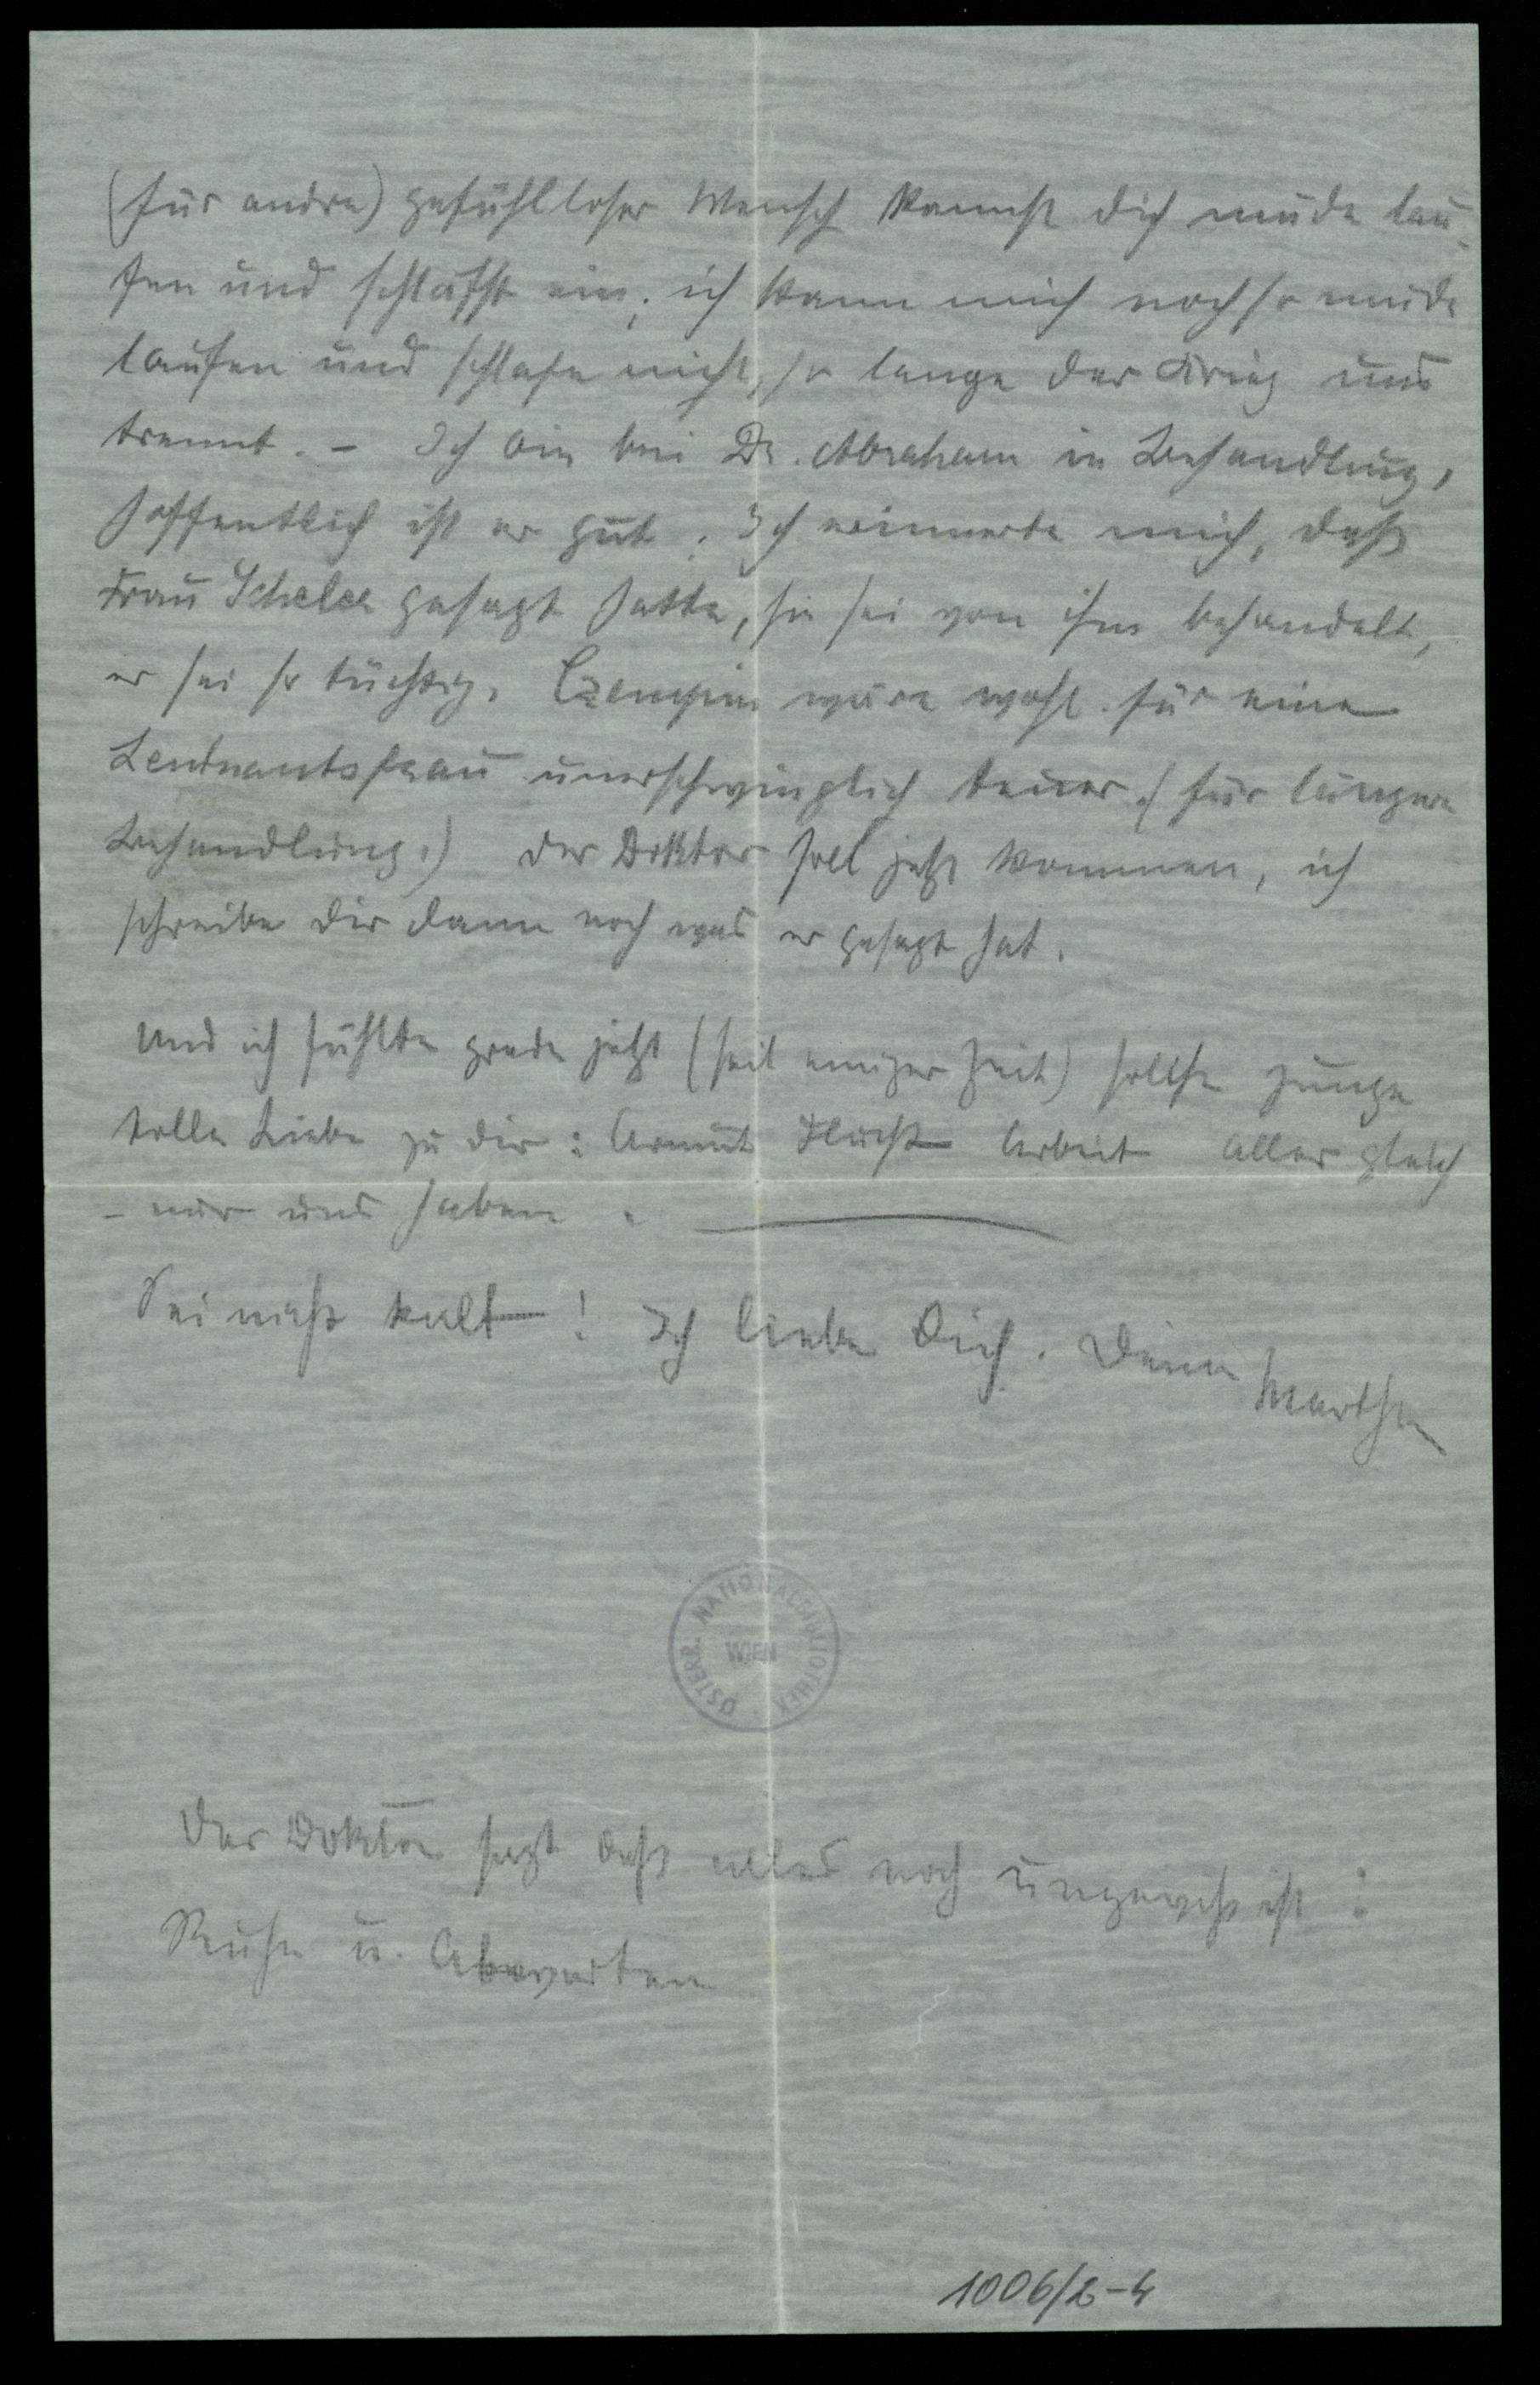 (für andre) gefühlloser Mensch kannst dich müde lau-
fen und schläfst ein; ich kann mich noch so müde
laufen und schlafe nicht, so lange der Krieg uns
trennt. – Ich bin bei Dr. Abraham in Behandlung,
hoffentlich ist er gut. Ich erinnerte mich, daß
Frau Scheler gesagt hatte, sie sei von ihm behandelt,
er sei so tüchtig. Czempin wäre wohl für eine
Leutnantsfrau unerschwinglich teuer. (für längere
Behandlung.) Der Doktor soll jetzt kommen, ich
schreibe dir dann noch was er gesagt hat.
Und ich fühlte grade jetzt (seit einiger Zeit) solche junge
tolle Liebe zu dir: Armut Flucht Arbeit alles gleich
– nur uns haben.
Sei nicht kalt –! Ich liebe Dich. Deine Martha
ÖSTERR. NATIONALBIBLIOTHEK WIEN
Der Doktor sagt daß alles noch ungewiß ist:
Ruhe u. Abwarten
1006/2-4